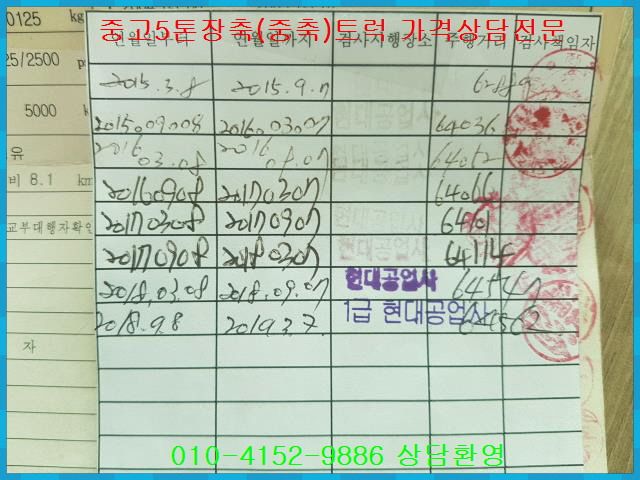 중고5톤장축(중축)트럭 가격상담전문
0125 kg
연월일부터 연월일까지 검사시행장소 주행거리 검사책임자
25/2500
2015.3.8 2015.9.7
5000
2015.09.08 2016.03.07 현대공업사 64036
2016 2016
유 03.08 현대공업사 64062
비 8.1 km
2016 09 08 2017 03 07 64066
2017 03 08 2017 09 07 현대공업사
교부대행자확인
2017 09 08 2018 03 07 현대공업사 64114
2018.03.08 2018.09.07 현대공업사
2018.9.8 2019.3.7. 1급 현대공업사
자
010-4152-9886 상담환영